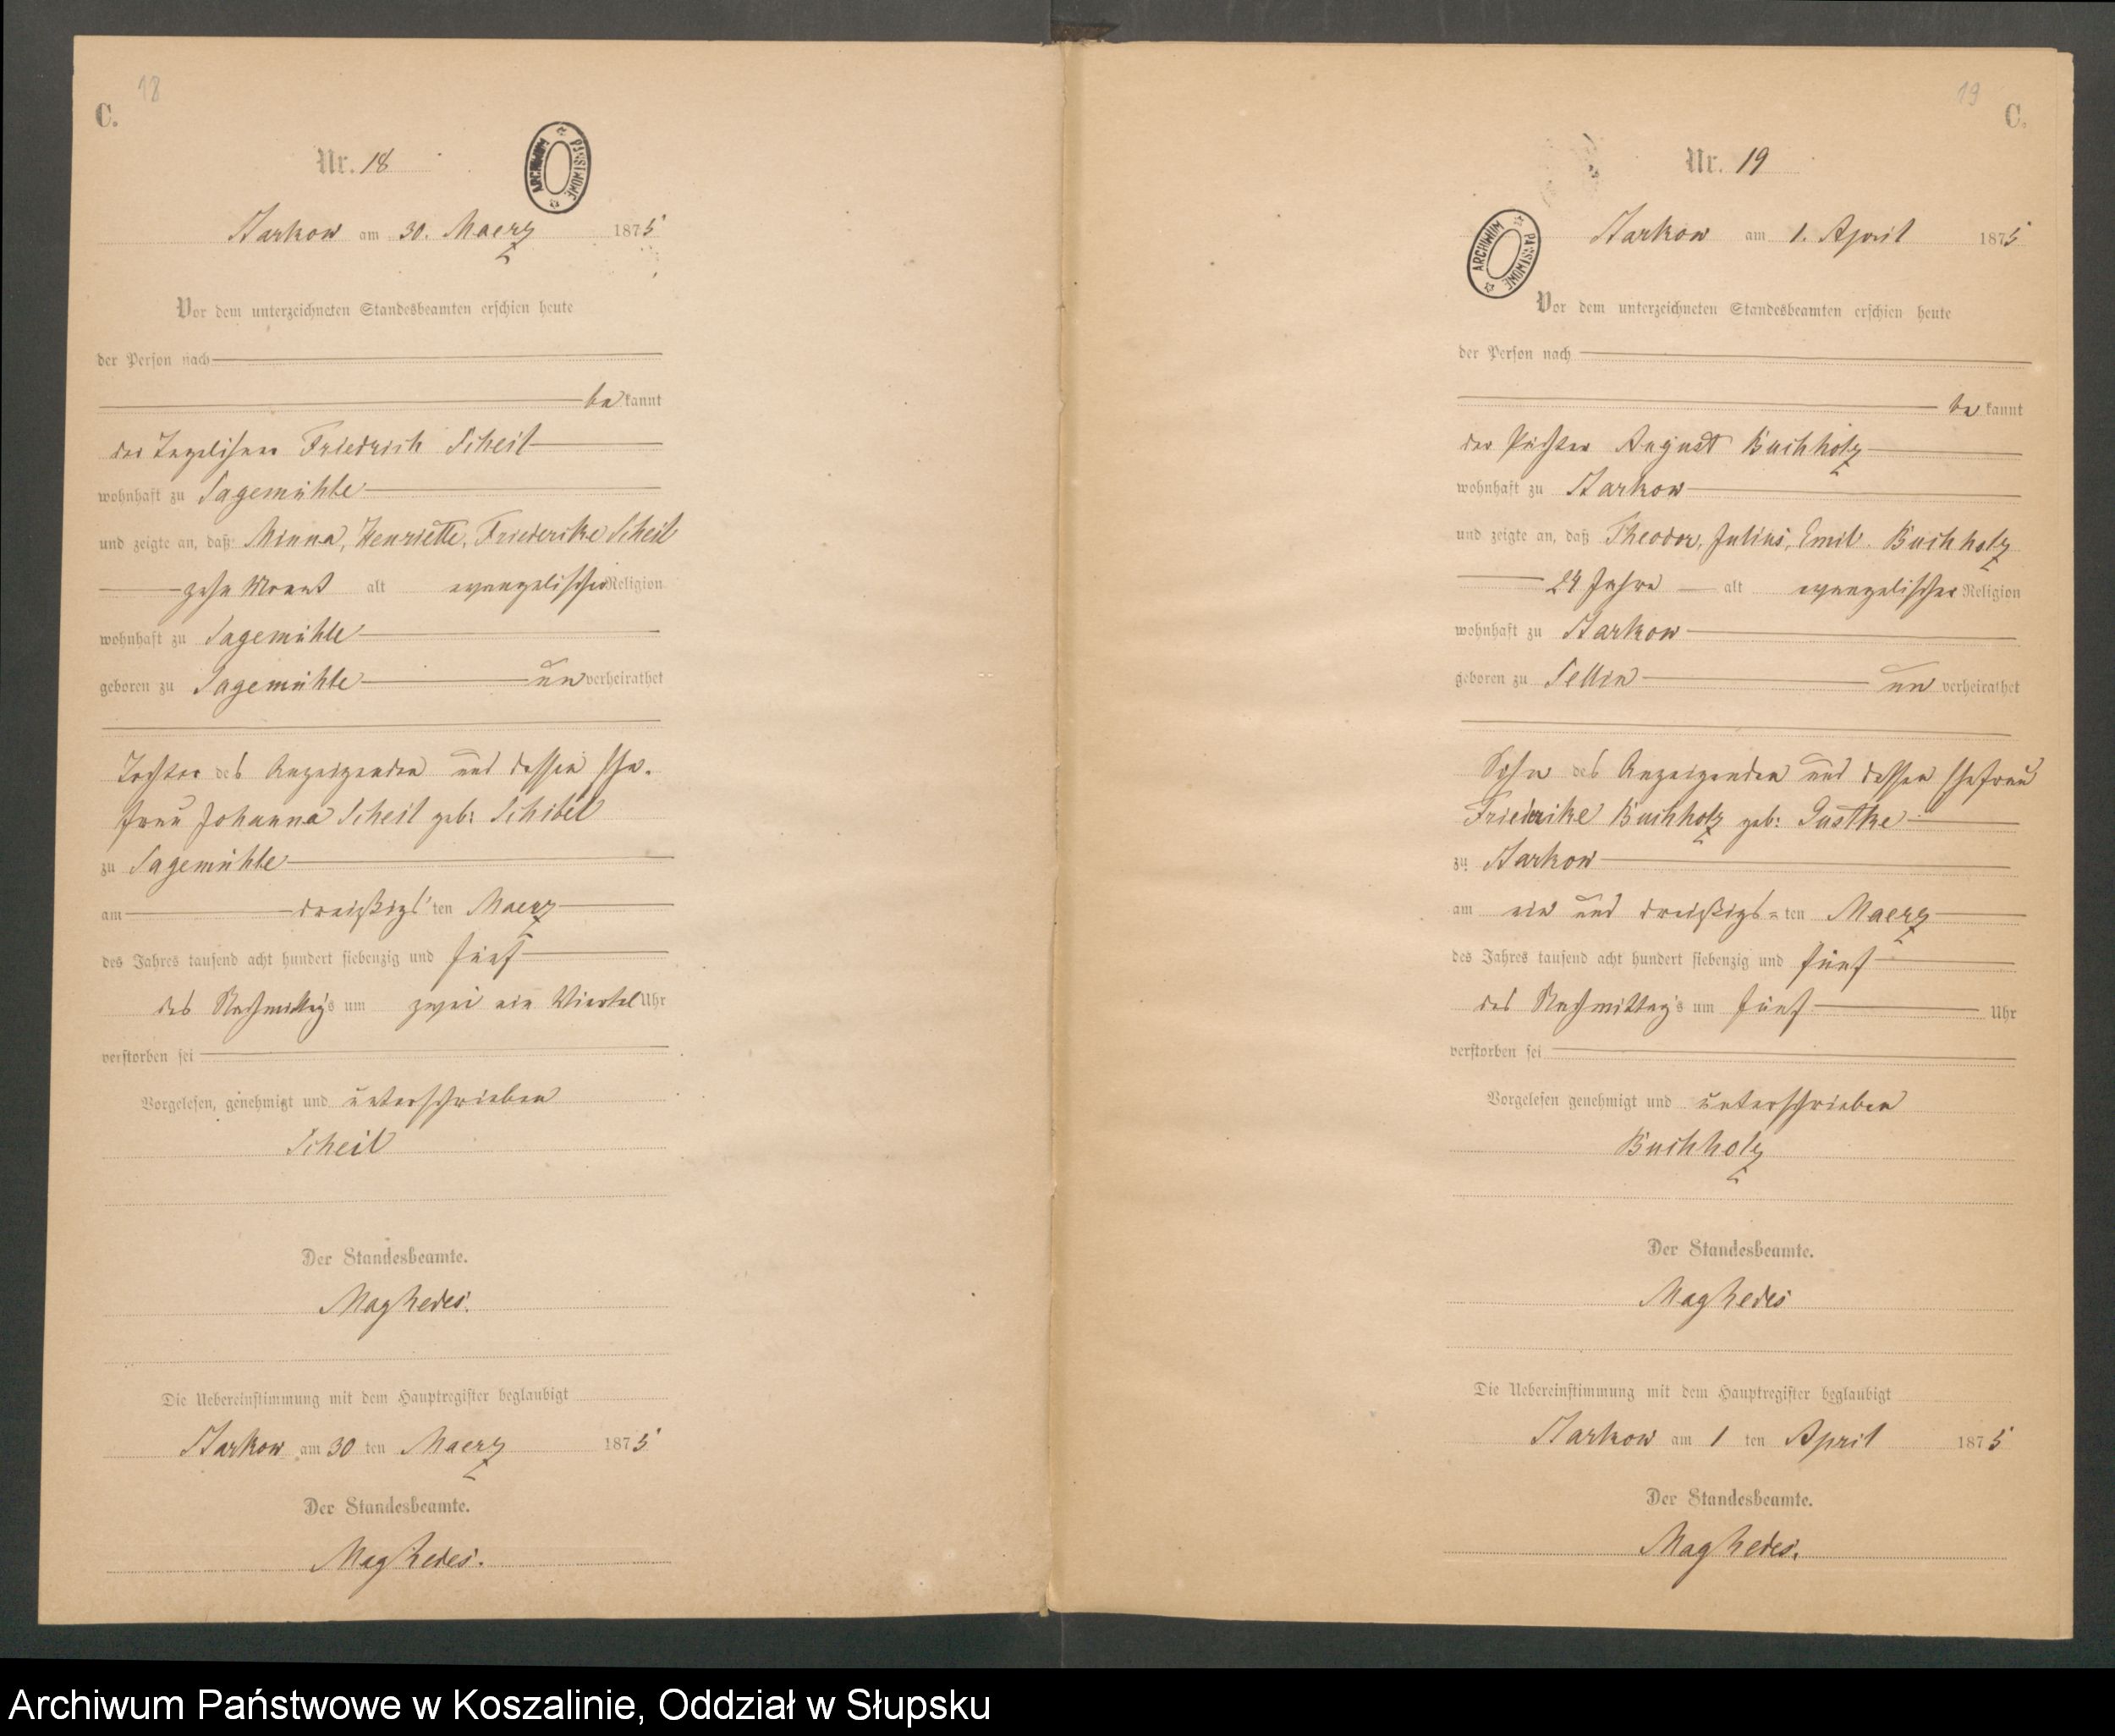 18
C.
Nr. 18
ARCHIWUM PAŃSTWOWE
Starkow am 30. Maerz 1875
Vor dem unterzeichneten Standesbeamten erschien heute
der Person nach
bekannt
der Friedrich Scheil
wohnhaft zu Sagemühle
und zeigte an, daß Minna, Henriette, Friederike Scheil
zehn Monat alt evangelischer Religion
wohnhaft zu Sagemühle
geboren zu Sagemühle unverheirathet
Tochter des Anzeigenden und dessen Ehe-
frau Johanna Scheil geb: Schibel
zu Sagemühle
am dreißigsten Maerz
des Jahres tausend acht hundert siebenzig und fünf
des Nachmittags um zwei ein Viertel Uhr
verstorben sei
Vorgelesen, genehmigt und unterschrieben
Scheil
Der Standesbeamte.
Die Uebereinstimmung mit dem Hauptregister beglaubigt
Starkow am 30 ten Maerz 1875
Der Standesbeamte.
19
C.
Nr. 19
ARCHIWUM PAŃSTWOWE
Starkow am 1. April 1875
Vor dem unterzeichneten Standesbeamten erschien heute
der Person nach
bekannt
der Pächter August Buchholz
wohnhaft zu Starkow
und zeigte an, daß Theodor, Julius, Emil Buchholz
24 Jahre alt evangelischer Religion
wohnhaft zu Starkow
geboren zu Sellin unverheirathet
Sohn des Anzeigenden und dessen Ehefrau
Friederike Buchholz geb: Gustke
zu Starkow
am ein und dreißigs=ten Maerz
des Jahres tausend acht hundert siebenzig und fünf
des Nachmittags um fünf Uhr
verstorben sei
Vorgelesen genehmigt und unterschrieben
Buchholz
Der Standesbeamte.
Die Uebereinstimmung mit dem Hauptregister beglaubigt
Starkow am 1 ten April 1875
Der Standesbeamte.
Archiwum Państwowe w Koszalinie, Oddział w Słupsku